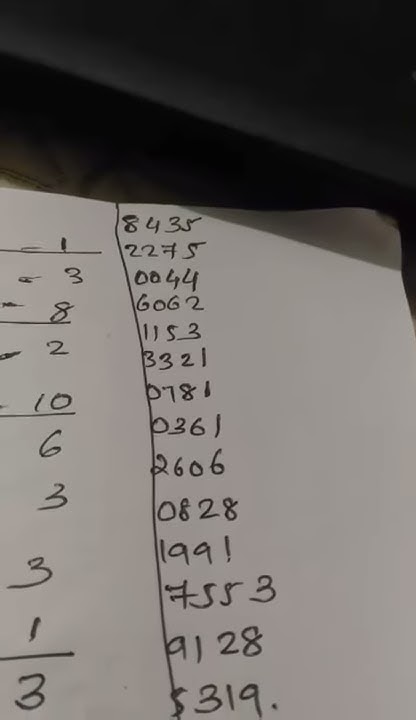 - 1 8435
2275
- 3 0044
- 8 6062
1153
- 2 3321
0781
- 10 0361
6 2606
3 0828
1991
3 7553
1 9128
3 5319.